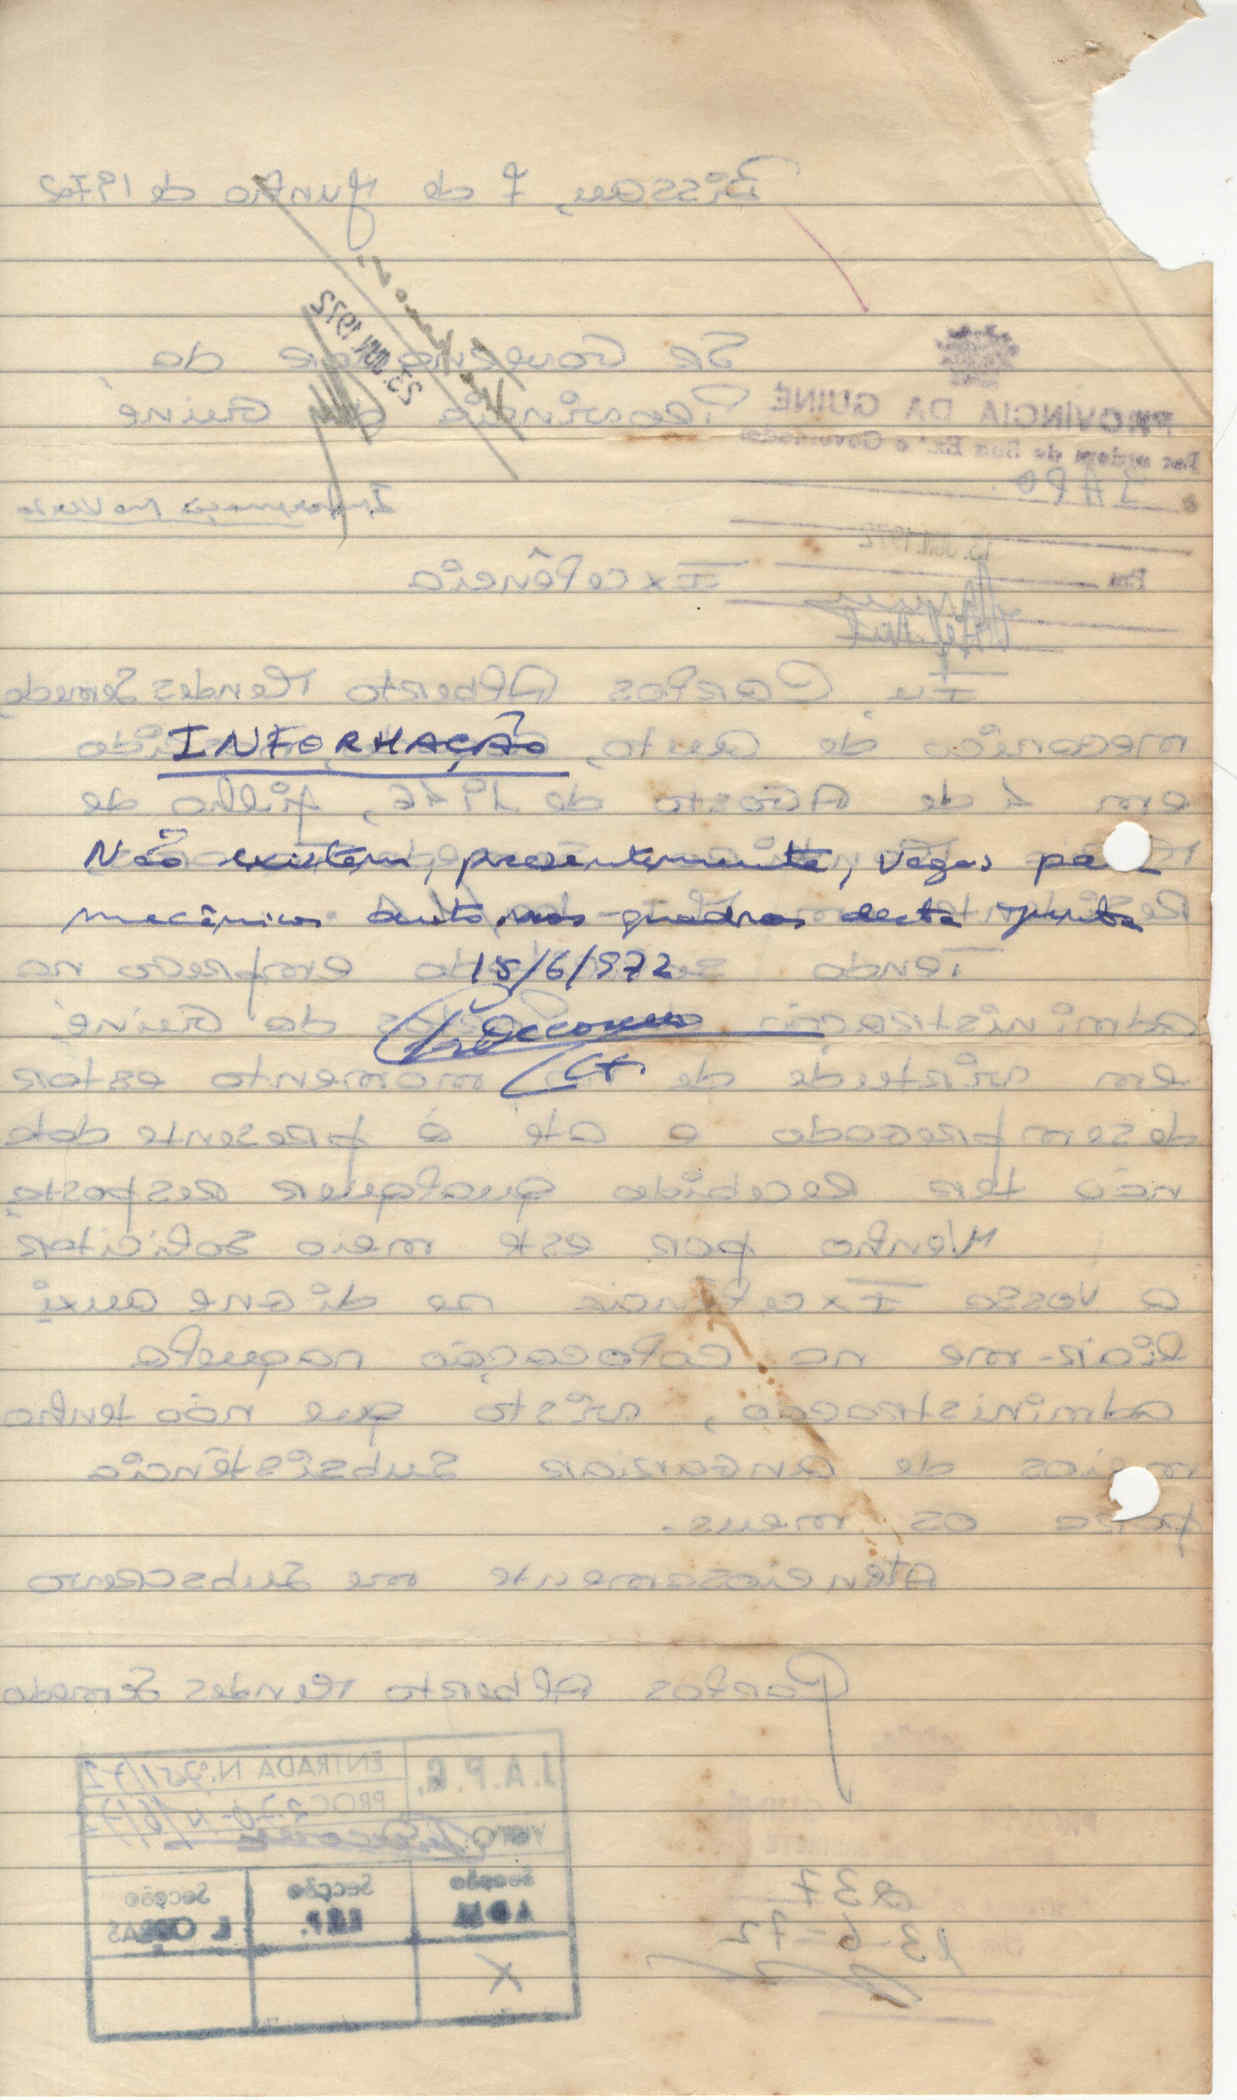 Bissau, 7 de Junho de 1972
23 JUN 1972
Sr Governador da
Província da Guiné
PROVÍNCIA DA GUINÉ
Por ordem de Sua Ex.ª o Governador
à JAPG
Informação no verso
13. JUN. 1972
Em
Excelência
Eu Carlos Alberto Mendes Semedo
INFORMAÇÃO
mecanico de auto,
em 1 de Agosto de 1946, filho de
Não existem, presentemente, vagas para
mecânicos auto nos quadros desta Junta
15/6/972
Tendo emprego na
administração Portos da Guiné
em virtude de no momento estar
desempregado e até á presente data
não ter recebido qualquer resposta
Venho por este meio solicitar
a vossa Excelência se digne auxi
liar-me na colocação naquela
administracao, visto que não tenho
meios de angariar subsistência
para os meus.
Atenciosamente me subscrevo
Carlos Alberto Mendes Semedo
J.A.P.G.
ENTRADA N. 951/72
PROC
VISTO
Secção
ADM
Secção
Secção
OBRAS
X
237
13-6-72